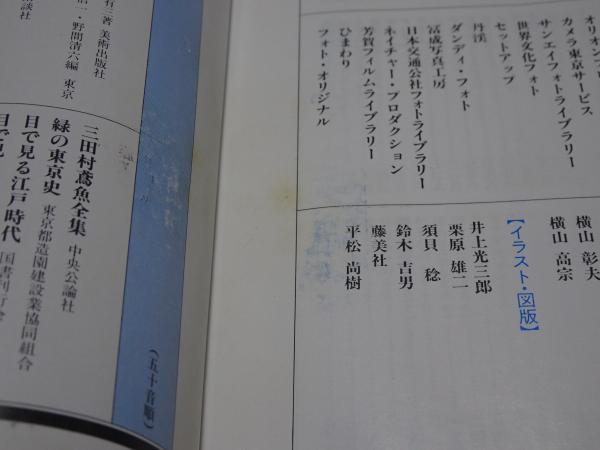 カメラ東京サービス
サンエイフォトライブラリー
世界文化フォト
セットアップ
丹渓
ダンディ・フォト
冨成写真工房
日本交通公社フォトライブラリー
ネイチャー・プロダクション
芳賀フィルムライブラリー
ひまわり
フォト・オリジナル
横山 彰夫
横山 高宗
【イラスト・図版】
井上光三郎
栗原 雄二
須貝 稔
鈴木 吉男
藤美社
平松 尚樹
有三著 美術出版社
野間清六編 東京
三田村鳶魚全集 中央公論社
緑の東京史 東京都造園建設業協同組合
目で見る江戸時代 国書刊行会
(五十音順)